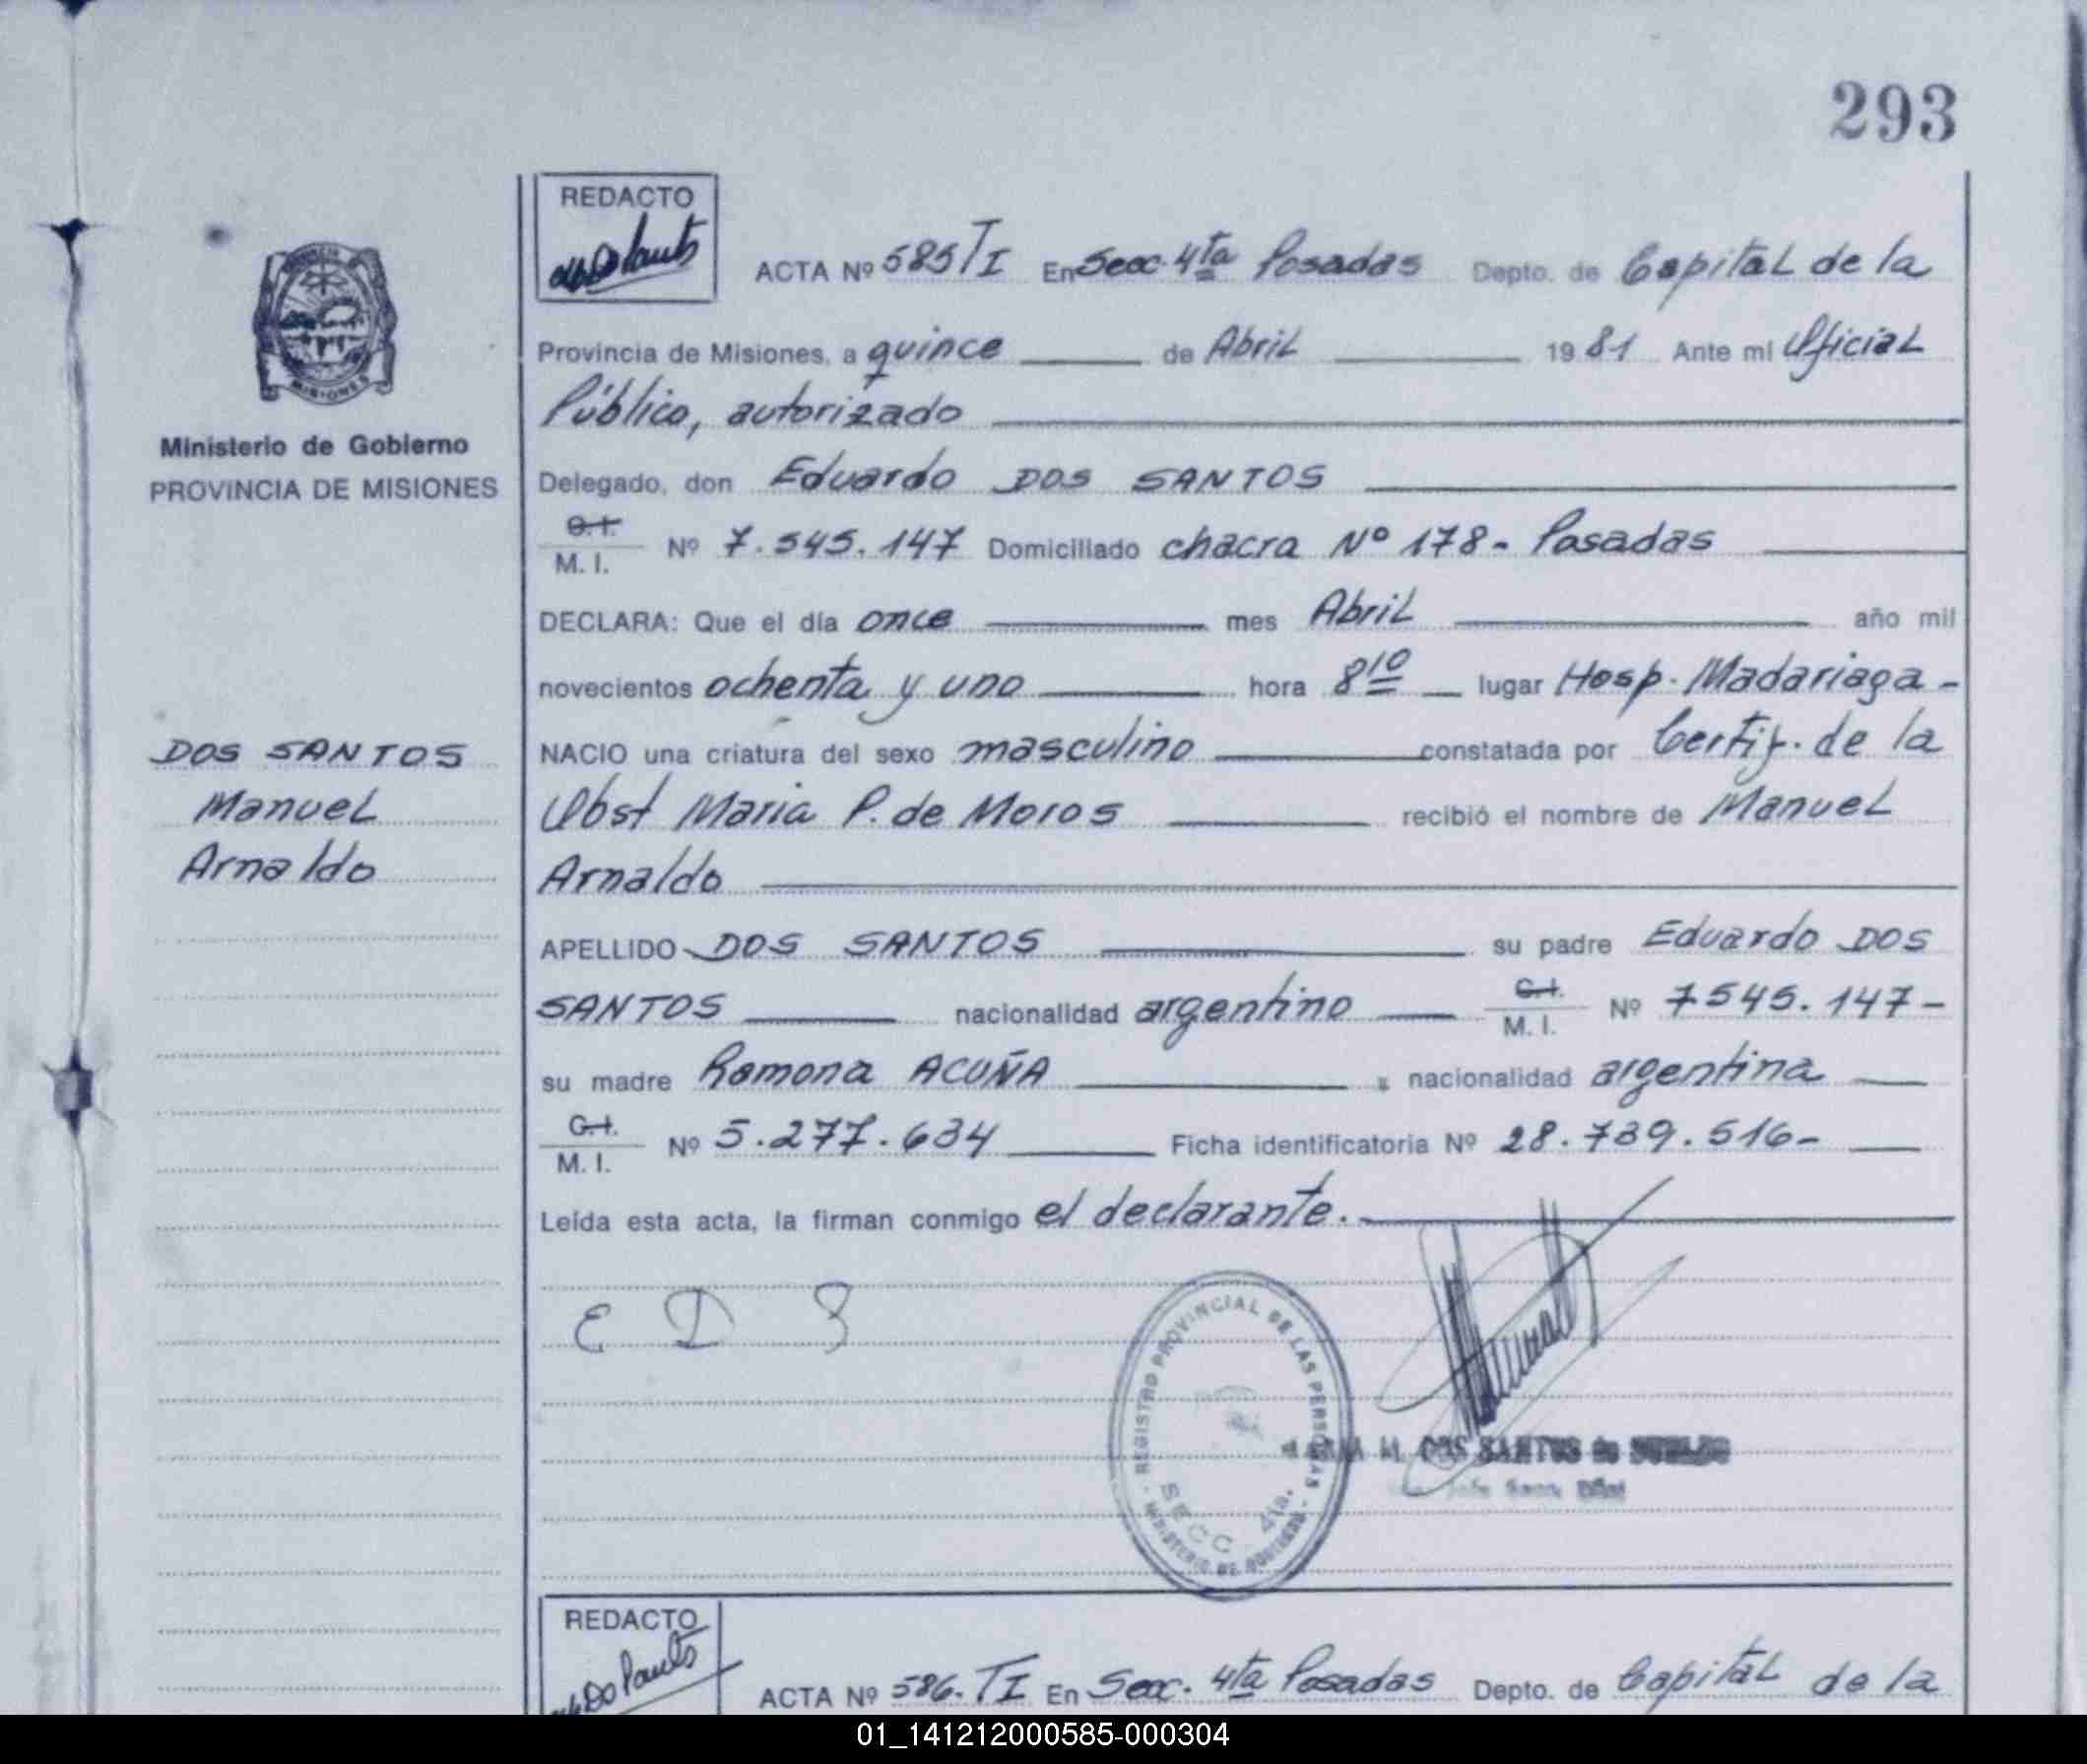 293
REDACTO
ACTA Nº 585 TI En Secc. 4ta Posadas Depto. de Capital de la
Provincia de Misiones, a quince de Abril 1981 Ante mi Oficial
Público, autorizado
Ministerio de Gobierno
PROVINCIA DE MISIONES
Delegado, don Eduardo DOS SANTOS
C.I.
M. I. Nº 7.545.147 Domiciliado chacra Nº 178 - Posadas
DECLARA: Que el día once mes Abril año mil
novecientos ochenta y uno hora 8 10 lugar Hosp. Madariaga -
NACIO una criatura del sexo masculino constatada por Certif. de la
Obst Maria P. de Moros recibió el nombre de Manuel
Arnaldo
DOS SANTOS
Manuel
Arnaldo
APELLIDO DOS SANTOS su padre Eduardo DOS
SANTOS nacionalidad argentino C.I.
M. I. Nº 7545.147 -
su madre Ramona ACUÑA nacionalidad argentina
C.I.
M. I. Nº 5.277.634 Ficha identificatoria Nº 28.739.516 -
Leída esta acta, la firman conmigo el declarante.
E D S
REGISTRO PROVINCIAL DE LAS PERSONAS
SECC 4ta.
MINISTERIO DE GOBIERNO
M. DOS SANTOS de
REDACTO
ACTA Nº 586. TI En Secc. 4ta Posadas Depto. de Capital de la
01_141212000585-000304